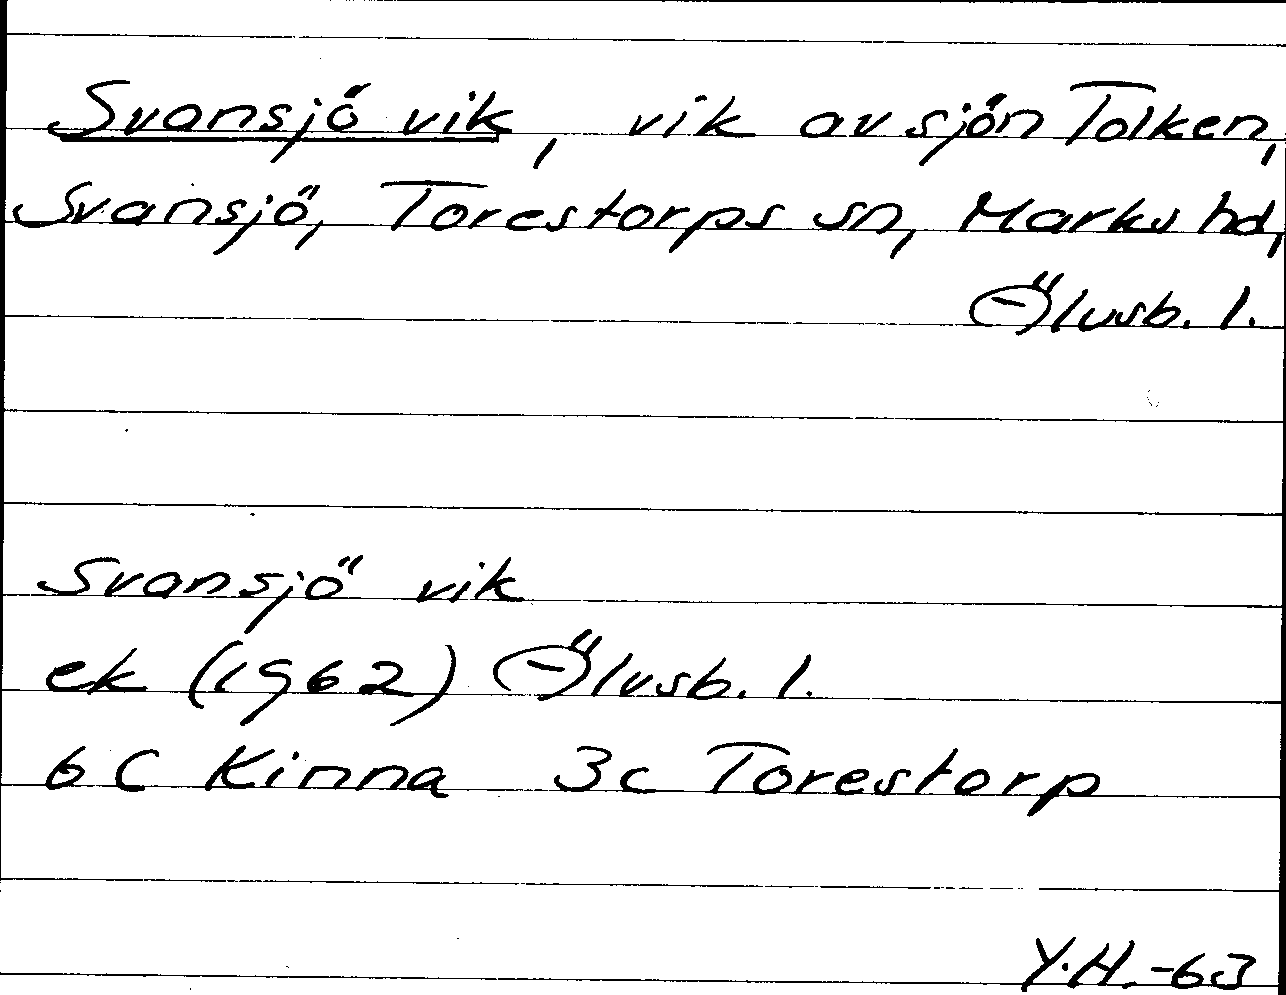 Svansjö vik, vik av sjön Tolken,
Svansjö, Torestorps sn, Marks hd,
Älvsb. l.
Svansjö vik
ek (1962) Älvsb. l.
6C Kinna 3c Torestorp
Y.H.-63